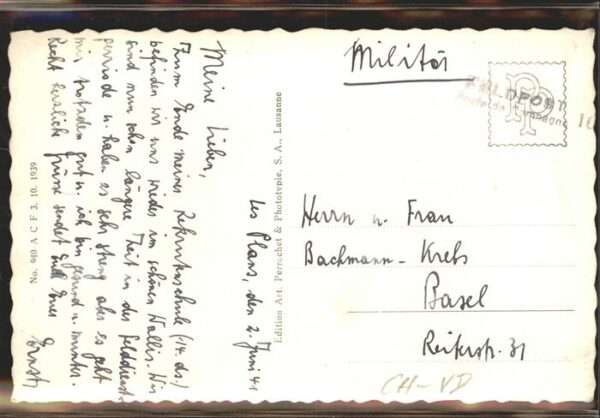 Les Plans, den 2. Juni 41
Meine Lieben,
Zum Ende meiner Rekrutenschule (14. ds.)
befinden wir uns wieder im schönen Wallis. Wir
sind nun schon längere Zeit in der Felddienst-
periode u. haben es sehr streng aber es geht
mir trotzdem gut u. ich bin gesund u. munter.
Recht herzliche Grüsse sendet Euch Euer
Ernst
No. 949 A C F 3. 10. 1939
Edition Art. Perrochet & Phototypie, S. A., Lausanne
Militär
FELDPOST
Herrn u. Frau
Bachmann-Krebs
Basel
Reiterstr. 31
CH-VD